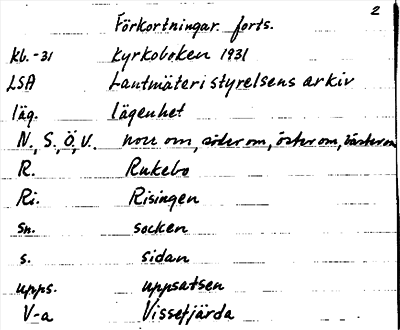 2
Förkortningar forts.
kb.-31 Kyrkoboken 1931
LSA Lantmäteristyrelsens arkiv
läg. lägenhet
N., S., Ö., V. norr om, söder om, öster om, väster om
R. Rukebo
Ri. Risingen
sn. socken
s. sidan
upps. uppsatsen
V-a Vissefjärda